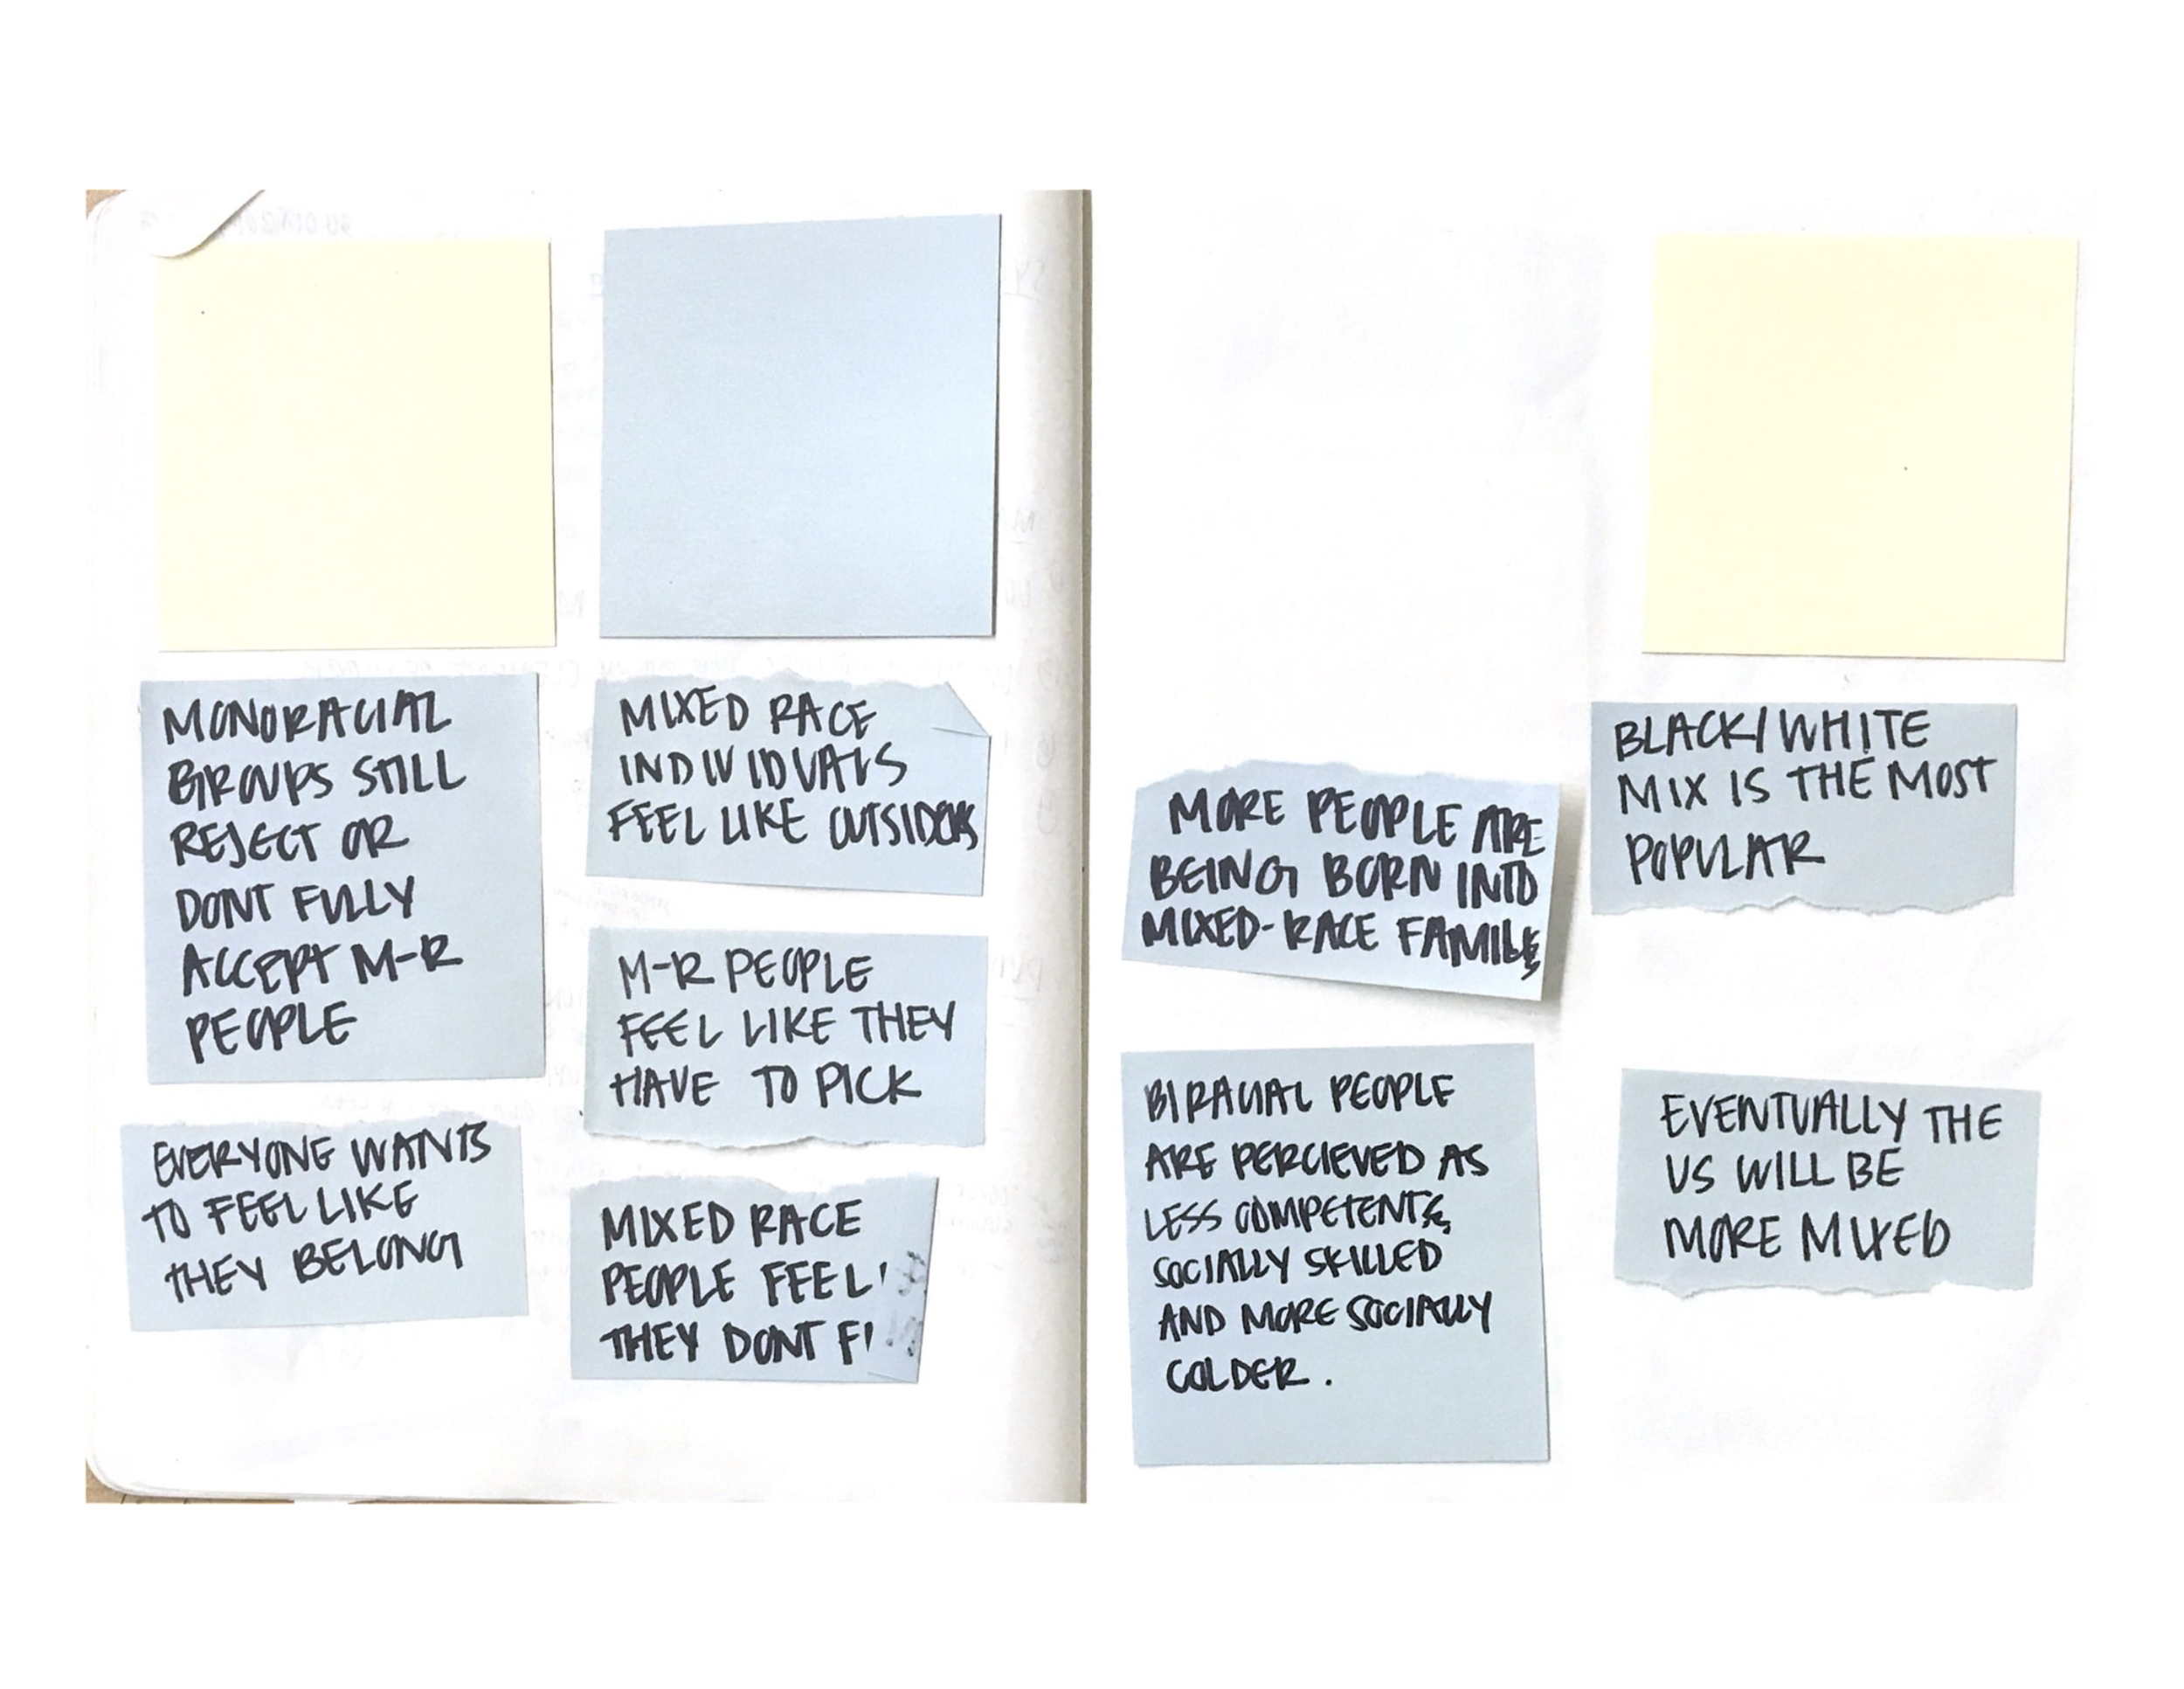 MONORACIAL
GROUPS STILL
REJECT OR
DONT FULLY
ACCEPT M-R
PEOPLE
EVERYONE WANTS
TO FEEL LIKE
THEY BELONG
MIXED RACE
INDIVIDUALS
FEEL LIKE OUTSIDERS
M-R PEOPLE
FEEL LIKE THEY
HAVE TO PICK
MIXED RACE
PEOPLE FEEL
THEY DONT
MORE PEOPLE ARE
BEING BORN INTO
MIXED-RACE FAMILIES
BIRACIAL PEOPLE
ARE PERCIEVED AS
LESS COMPETENT &
SOCIALLY SKILLED
AND MORE SOCIALLY
COLDER.
BLACK/WHITE
MIX IS THE MOST
POPULAR
EVENTUALLY THE
US WILL BE
MORE MIXED